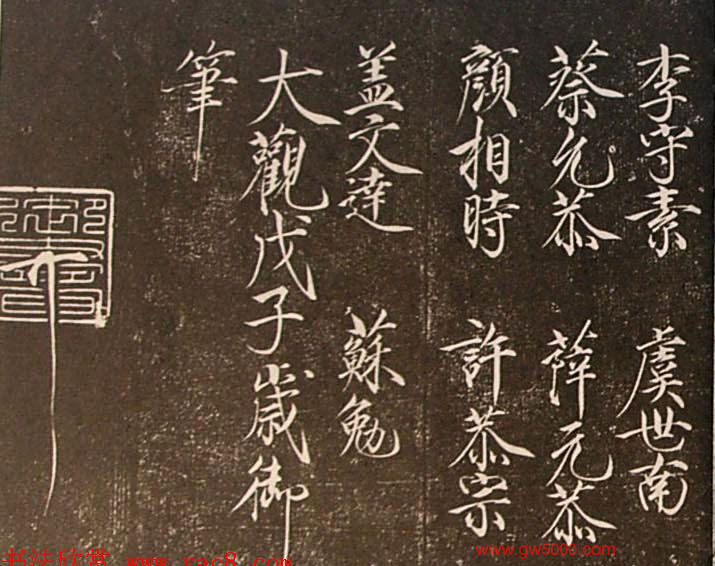 李守素 虞世南
蔡允恭 薛元恭
顏相時 許恭宗
盖文達 蘇勉
大觀戊子歲御
筆
书法欣赏 www.yac8.com
www.gw5000.com